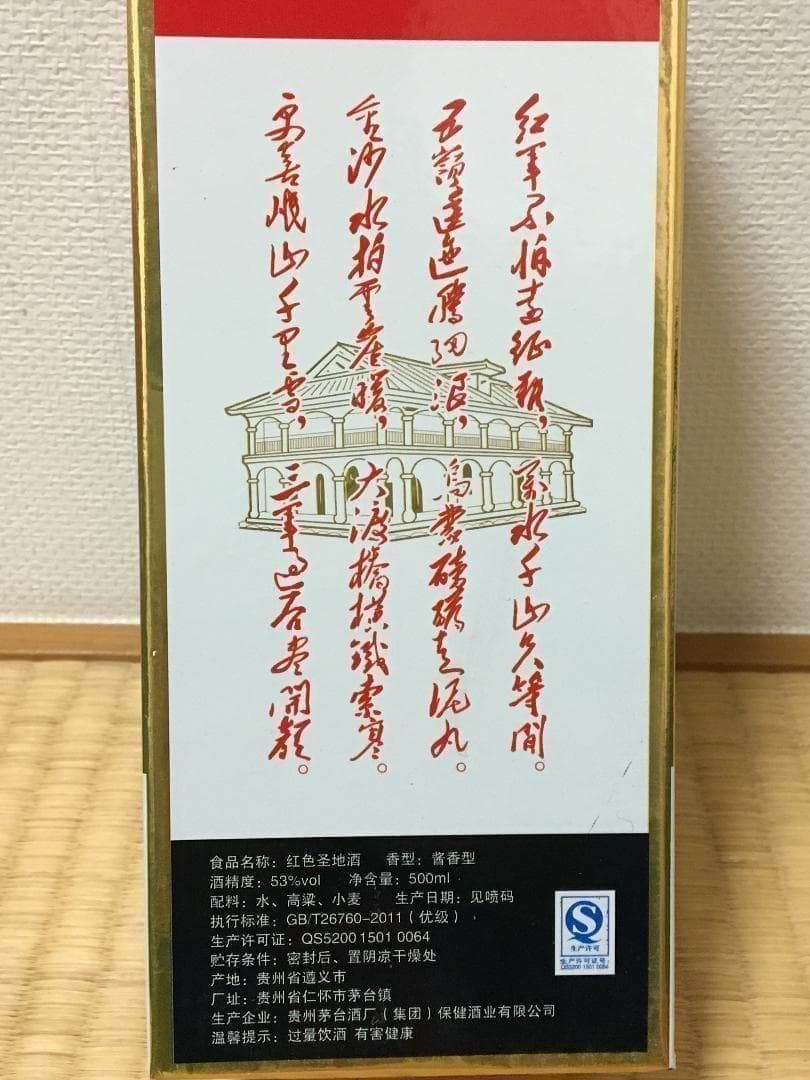 红军不怕远征难，万水千山只等闲。
五嶺逶迤腾细浪，乌蒙磅礴走泥丸。
金沙水拍雲崖暖，大渡橋横鐵索寒。
更喜岷山千里雪，三军过后尽開颜。
食品名称：红色圣地酒 香型：酱香型
酒精度：53%vol 净含量：500ml
配料：水、高粱、小麦 生产日期：见喷码
执行标准：GB/T26760-2011（优级）
生产许可证：QS5200 1501 0064
贮存条件：密封后、置阴凉干燥处
产地：贵州省遵义市
厂址：贵州省仁怀市茅台镇
生产企业：贵州茅台酒厂（集团）保健酒业有限公司
温馨提示：过量饮酒 有害健康
S
生产许可
生产许可证号:
QS5200 1501 0064